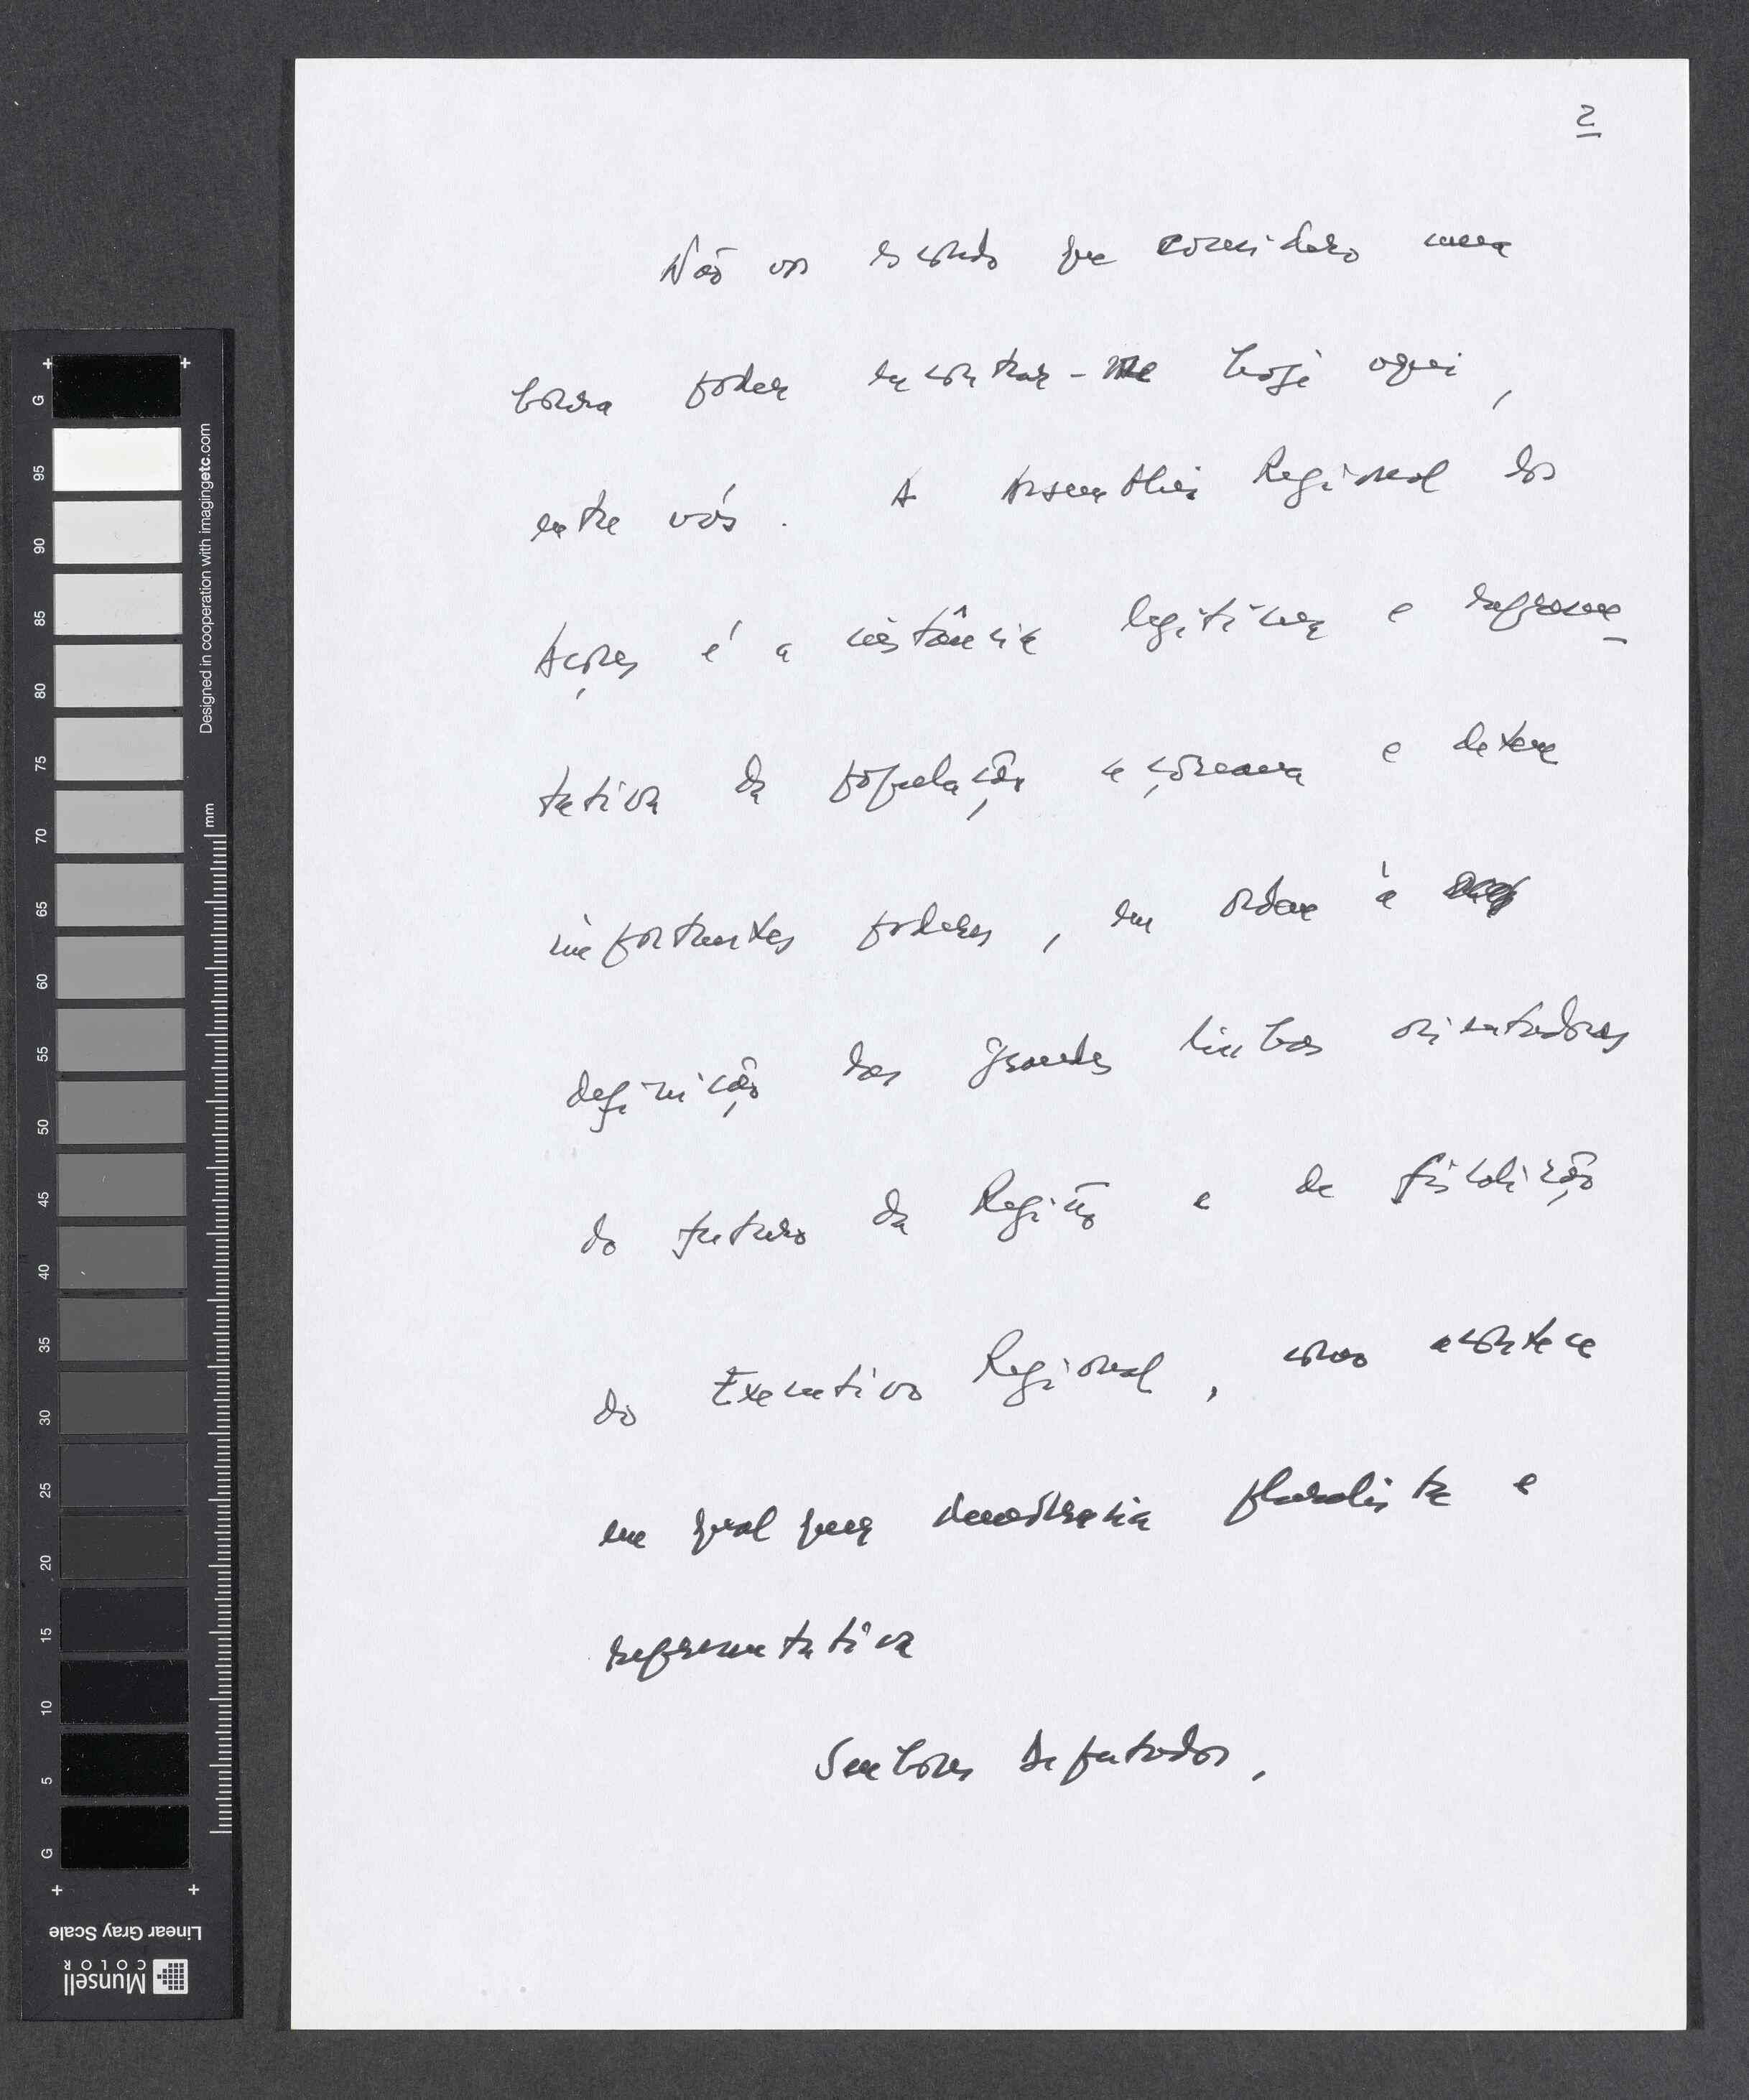 2
Não vos escondo que considero uma
honra poder encontrar-me hoje aqui,
entre vós. A Assembleia Regional dos
Açores é a instância legítima e represen-
tativa da população açoreana e detém
importantes poderes, em ordem à
definição das grandes linhas orientadoras
do futuro da Região e de fiscalização
do Executivo Regional, como acontece
em qualquer democracia pluralista e
representativa
Senhores Deputados,
G
95
90
85
80
75
70
65
60
55
50
45
40
35
30
25
20
15
10
5
G
Designed in cooperation with imagingetc.com
mm
Linear Gray Scale
Munsell
COLOR